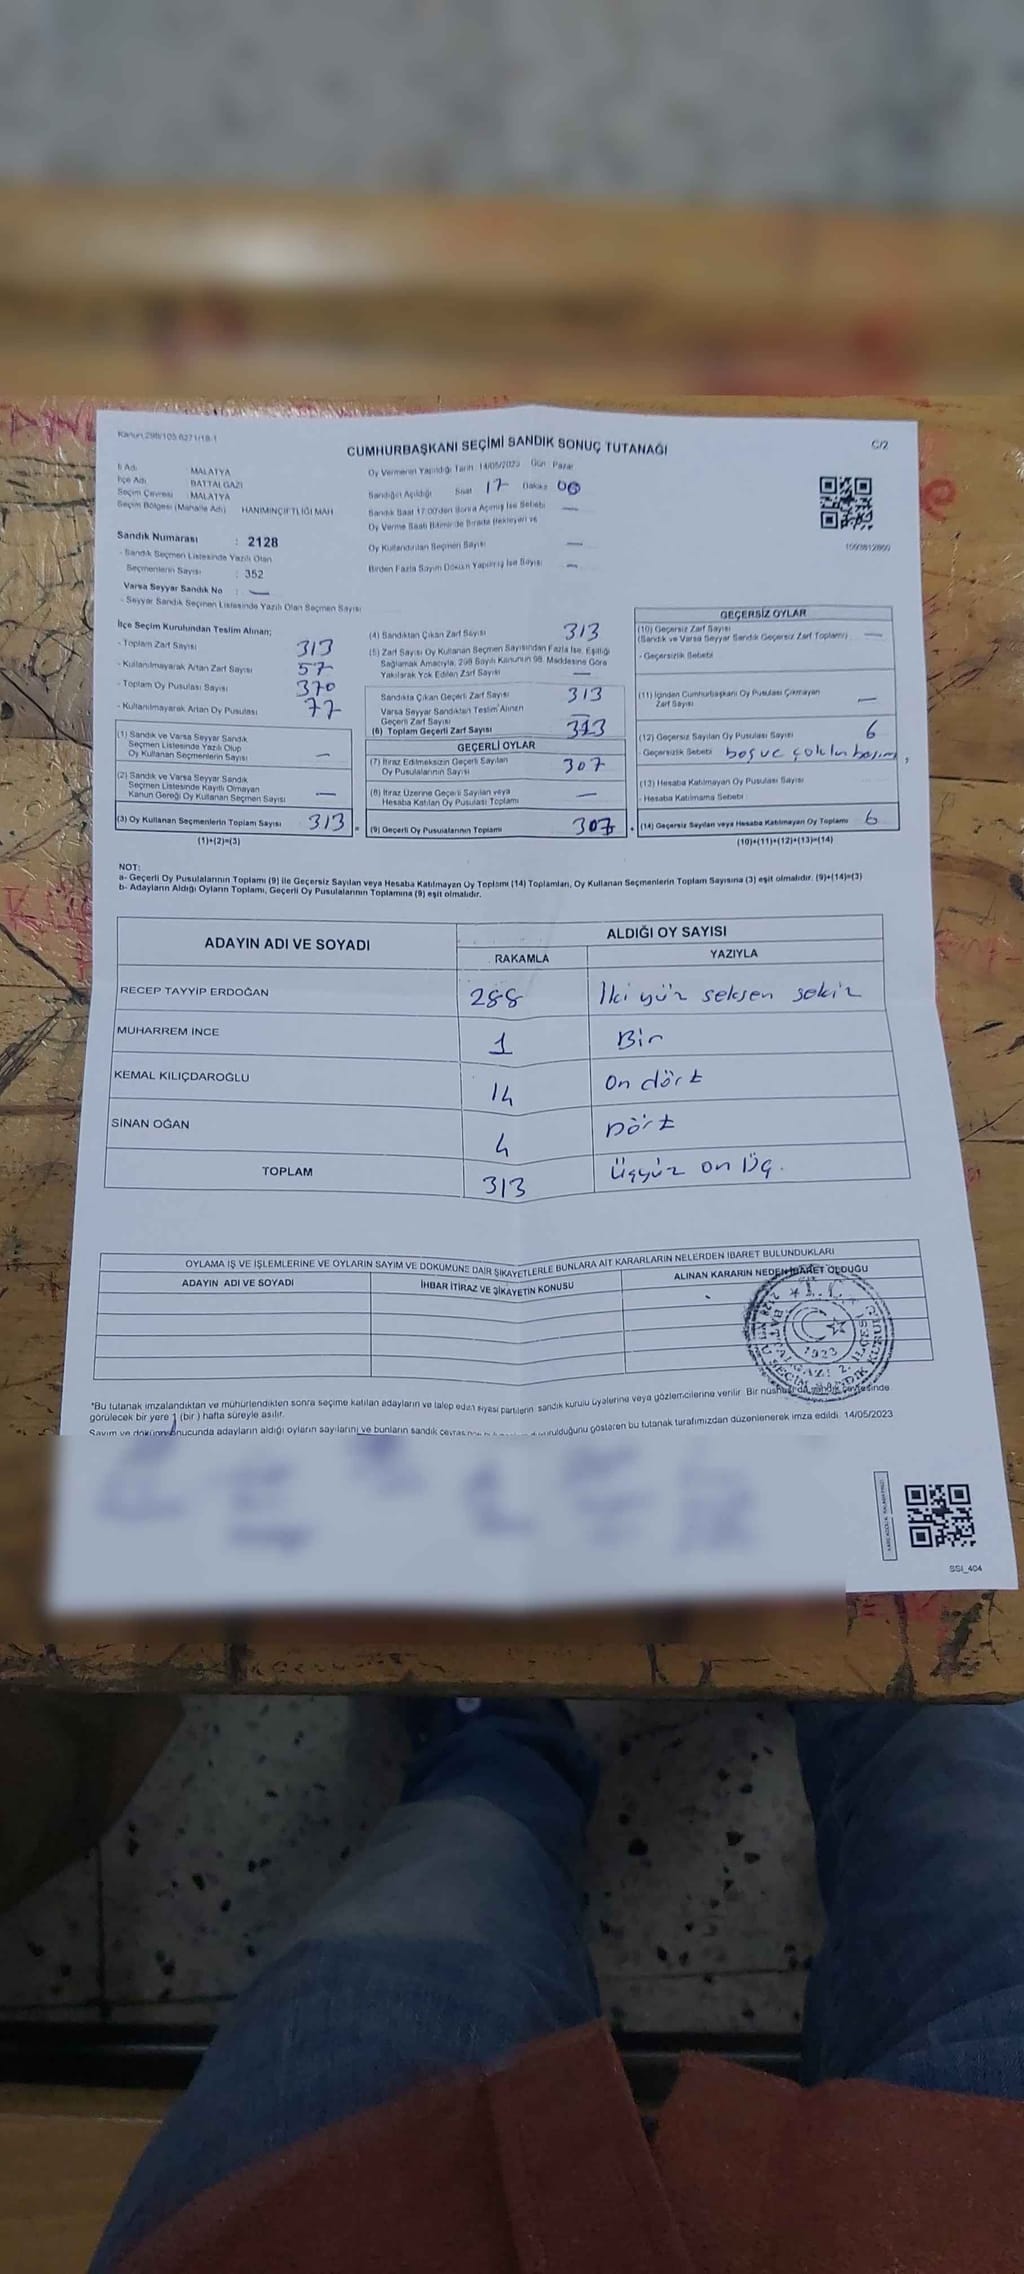 Kanun:298/105.6271/18-1
CUMHURBAŞKANI SEÇİMİ SANDIK SONUÇ TUTANAĞI
C/2
İl Adı : MALATYA
İlçe Adı : BATTALGAZİ
Seçim Çevresi : MALATYA
Seçim Bölgesi (Mahalle Adı) : HANIMINÇİFTLİĞİ MAH
Oy Vermenin Yapıldığı Tarih: 14/05/2023 Gün : Pazar
Sandığın Açıldığı Saat 17 Dakika 00
Sandık Saat 17:00'den Sonra Açılmış İse Sebebi —
Oy Verme Saati Bitiminde Sırada Bekleyen ve
Oy Kullandırılan Seçmen Sayısı —
Birden Fazla Sayım Döküm Yapılmış İse Sayısı —
Sandık Numarası : 2128
- Sandık Seçmen Listesinde Yazılı Olan
Seçmenlerin Sayısı : 352
Varsa Seyyar Sandık No : —
- Seyyar Sandık Seçmen Listesinde Yazılı Olan Seçmen Sayısı
İlçe Seçim Kurulundan Teslim Alınan;
- Toplam Zarf Sayısı 313
- Kullanılmayarak Artan Zarf Sayısı 57
- Toplam Oy Pusulası Sayısı 370
- Kullanılmayarak Artan Oy Pusulası 77
(1) Sandık ve Varsa Seyyar Sandık
Seçmen Listesinde Yazılı Olup
Oy Kullanan Seçmenlerin Sayısı —
(2) Sandık ve Varsa Seyyar Sandık
Seçmen Listesinde Kayıtlı Olmayan
Kanun Gereği Oy Kullanan Seçmen Sayısı —
(3) Oy Kullanan Seçmenlerin Toplam Sayısı 313
(1)+(2)=(3)
(4) Sandıktan Çıkan Zarf Sayısı 313
(5) Zarf Sayısı Oy Kullanan Seçmen Sayısından Fazla İse, Eşitliği
Sağlamak Amacıyla, 298 Sayılı Kanunun 98. Maddesine Göre
Yakılarak Yok Edilen Zarf Sayısı —
Sandıkta Çıkan Geçerli Zarf Sayısı 313
Varsa Seyyar Sandıktan Teslim Alınan
Geçerli Zarf Sayısı —
(6) Toplam Geçerli Zarf Sayısı 313
GEÇERLİ OYLAR
(7) İtiraz Edilmeksizin Geçerli Sayılan
Oy Pusulalarının Sayısı 307
(8) İtiraz Üzerine Geçerli Sayılan veya
Hesaba Katılan Oy Pusulası Toplamı —
(9) Geçerli Oy Pusulalarının Toplamı 307
GEÇERSİZ OYLAR
(10) Geçersiz Zarf Sayısı
(Sandık ve Varsa Seyyar Sandık Geçersiz Zarf Toplamı) —
- Geçersizlik Sebebi
(11) İçinden Cumhurbaşkanı Oy Pusulası Çıkmayan
Zarf Sayısı —
(12) Geçersiz Sayılan Oy Pusulası Sayısı 6
- Geçersizlik Sebebi boş ve çoklu basım
(13) Hesaba Katılmayan Oy Pusulası Sayısı
- Hesaba Katılmama Sebebi
(14) Geçersiz Sayılan veya Hesaba Katılmayan Oy Toplamı 6
(10)+(11)+(12)+(13)=(14)
NOT:
a- Geçerli Oy Pusulalarının Toplamı (9) ile Geçersiz Sayılan veya Hesaba Katılmayan Oy Toplamı (14) Toplamları, Oy Kullanan Seçmenlerin Toplam Sayısına (3) eşit olmalıdır. (9)+(14)=(3)
b- Adayların Aldığı Oyların Toplamı, Geçerli Oy Pusulalarının Toplamına (9) eşit olmalıdır.
ADAYIN ADI VE SOYADI
ALDIĞI OY SAYISI
RAKAMLA YAZIYLA
RECEP TAYYİP ERDOĞAN 288 İki yüz seksen sekiz
MUHARREM İNCE 1 Bir
KEMAL KILIÇDAROĞLU 14 On dört
SİNAN OĞAN 4 Dört
TOPLAM 313 Üçyüz on Üç.
OYLAMA İŞ VE İŞLEMLERİNE VE OYLARIN SAYIM VE DÖKÜMÜNE DAİR ŞİKAYETLERLE BUNLARA AİT KARARLARIN NELERDEN İBARET BULUNDUKLARI
ADAYIN ADI VE SOYADI
İHBAR İTİRAZ VE ŞİKAYETİN KONUSU
ALINAN KARARIN NEDEN İBARET OLDUĞU
T.C.
BATTALGAZİ 2. İLÇESİ
2128 NOLU SEÇİM SANDIK KURULU
1923
*Bu tutanak imzalandıktan ve mühürlendikten sonra seçime katılan adayların ve talep eden siyasi partilerin sandık kurulu üyelerine veya gözlemcilerine verilir. Bir nüshası da sandık çevresinde
görülecek bir yere 1 (bir) hafta süreyle asılır.
Sayım ve dökün sonucunda adayların aldığı oyların sayılarını ve bunların sandık çevresine duyurulduğunu gösteren bu tutanak tarafımızdan düzenlenerek imza edildi. 14/05/2023
SSI_404